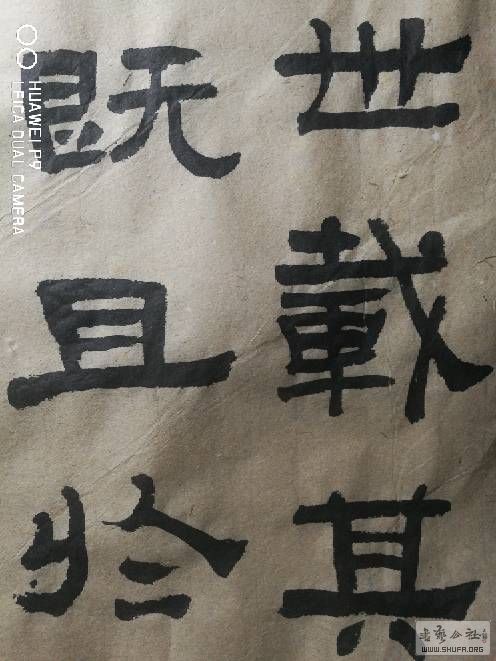 世載其
既且於
HUAWEI P9
LEICA DUAL CAMERA
书藝公社
WWW.SHUFA.ORG